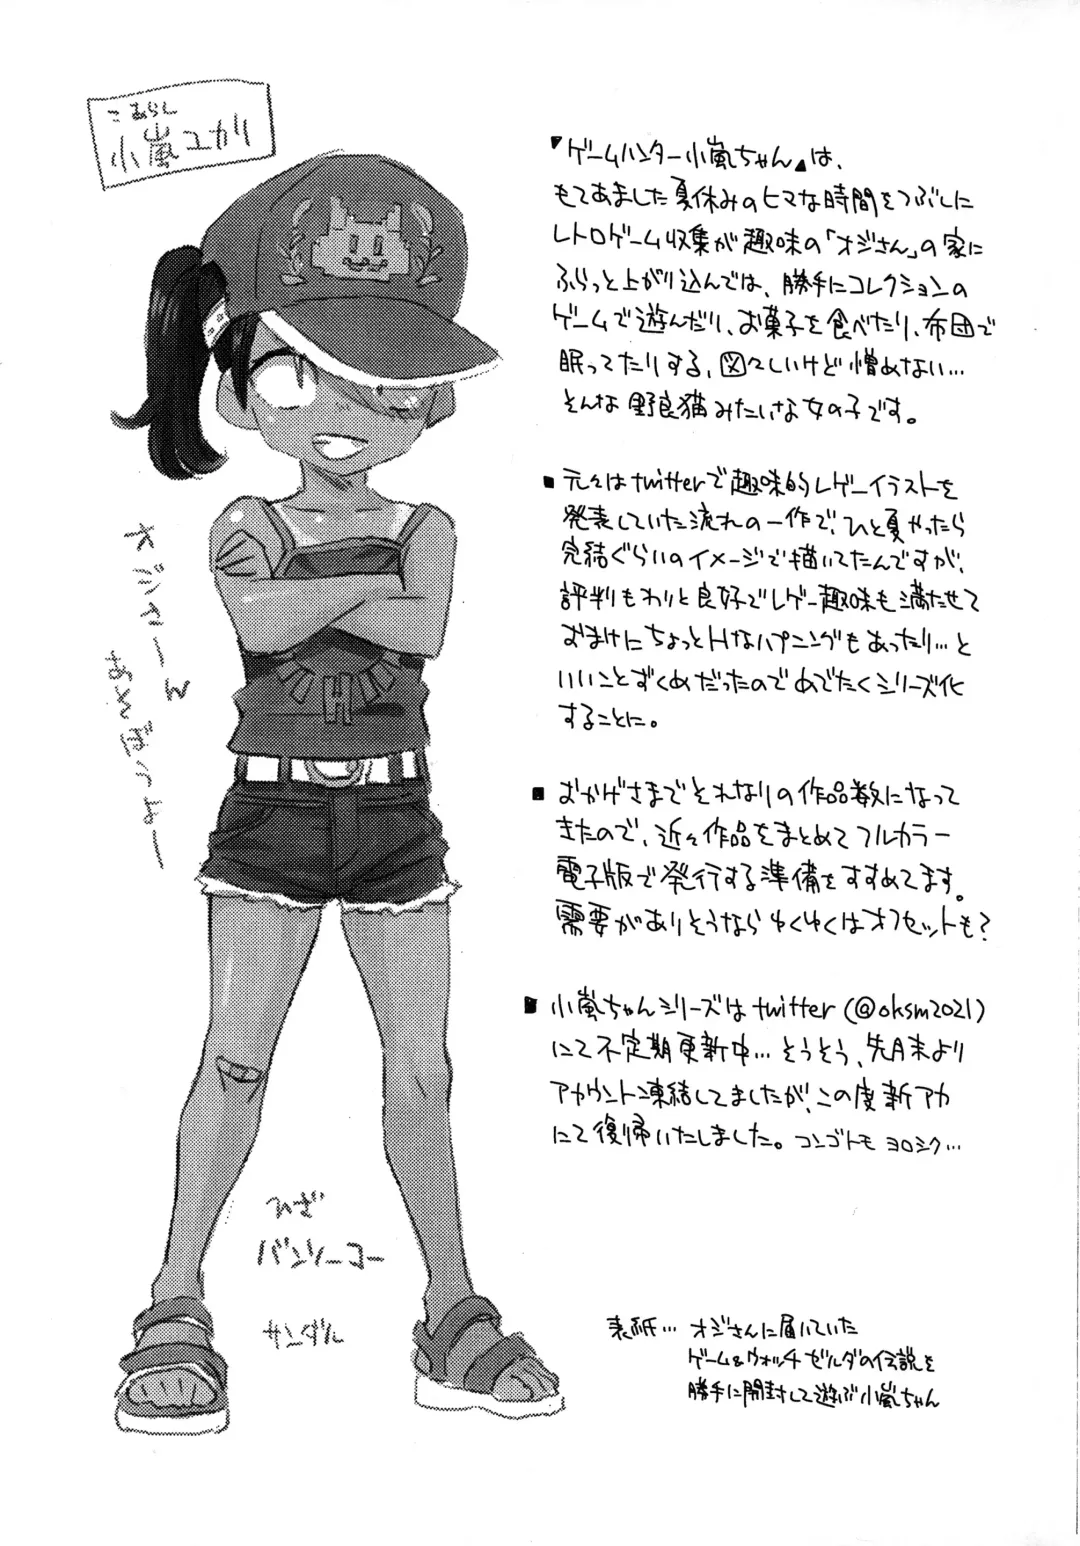 こあらし
小嵐ユカリ
『ゲームハンター小嵐ちゃん』は、
もてあました夏休みのヒマな時間をつぶしに
レトロゲーム収集が趣味の「オジさん」の家に
ふらっと上がり込んでは、勝手にコレクションの
ゲームで遊んだり、お菓子を食べたり、布団で
眠ってたりする、図々しいけど憎めない…
そんな野良猫みたいな女の子です。
■元々はtwitterで趣味的レゲーイラストを
発表していた流れの一作で、ひと夏やったら
完結ぐらいのイメージで描いてたんですが、
評判もわりと良好でレゲー趣味も満たせて
おまけにちょっとHなハプニングもあったり…と
いいことずくめだったのでめでたくシリーズ化
することに。
■おかげさまでそれなりの作品数になって
きたので、近々作品をまとめてフルカラー
電子版で発行する準備をすすめてます。
需要がありそうならゆくゆくはオフセットも?
■小嵐ちゃんシリーズはtwitter(@oksm2021)
にて不定期更新中…そうそう、先月末より
アカウント凍結してましたが、この度新アカ
にて復帰いたしました。コンゴトモヨロシク…
オジさーん
あそぼうよー
ひざ
バンソーコー
サンダル
表紙…オジさんに届いていた
ゲーム&ウォッチゼルダの伝説を
勝手に開封して遊ぶ小嵐ちゃん